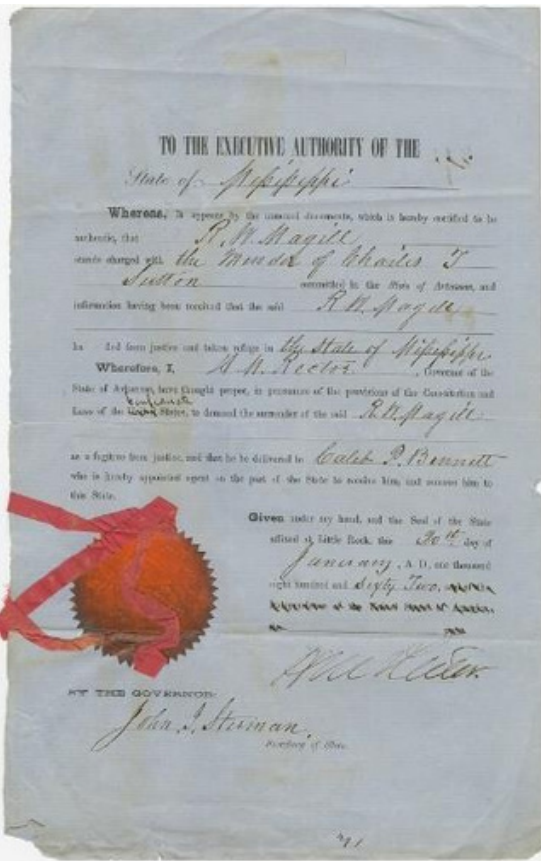 TO THE EXECUTIVE AUTHORITY OF THE
State of Mississippi
Whereas, It appears by the annexed documents, which is hereby certified to be
authentic, that R. W. Magill
stands charged with the Murder of Charles T
Sutton committed in the State of Arkansas, and
information having been received that the said R. W. Magill
ha ded from justice and taken refuge in the State of Mississippi
Wherefore, I, H. M. Rector, Governor of the
State of Arkansas, have thought proper, in pursuance of the provisions of the Constitution and
Confederate
Laws of the States, to demand the surrender of the said R. W. Magill
as a fugitive from justice, and that he be delivered to Caleb P. Bennett
who is hereby appointed agent on the part of the State to receive him, and remove him to
this State.
Given under my hand, and the Seal of the State
affixed at Little Rock, this 30th day of
January, A. D., one thousand
eight hundred and Sixty Two,
H M Rector
BY THE GOVERNOR:
John I. Stirman
Secretary of State.